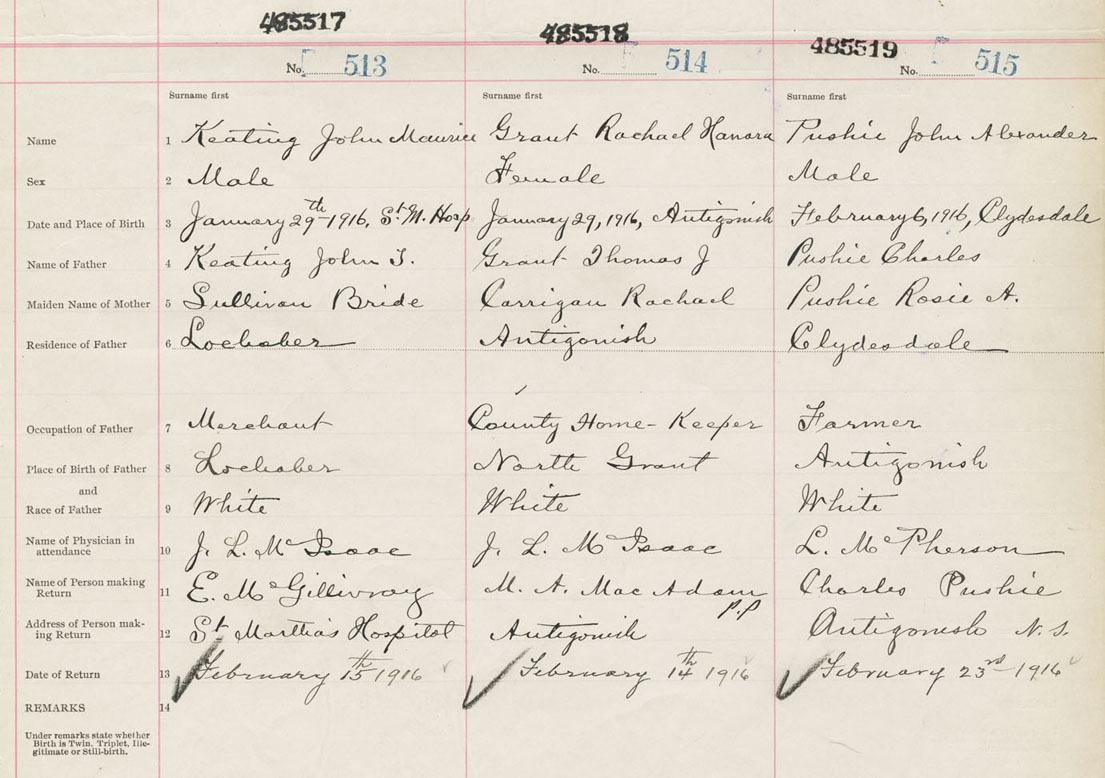 485517 485518 485519
No. 513 No. 514 No. 515
Surname first Surname first Surname first
Name 1 Keating John Maurice Grant Rachael Hanora Pushie John Alexander
Sex 2 Male Female Male
Date and Place of Birth 3 January 29th 1916, St. M. Hosp January 29, 1916, Antigonish February 6, 1916, Clydesdale
Name of Father 4 Keating John J. Grant Thomas J Pushie Charles
Maiden Name of Mother 5 Sullivan Bride Carrigan Rachael Pushie Rosie A.
Residence of Father 6 Lochaber Antigonish Clydesdale
Occupation of Father 7 Merchant County Home-Keeper Farmer
Place of Birth of Father 8 Lochaber North Grant Antigonish
and
Race of Father 9 White White White
Name of Physician in
attendance 10 J. L. McIsaac J. L. McIsaac L. McPherson
Name of Person making
Return 11 E. McGillivray M. A. MacAdam Charles Pushie
P.P
Address of Person mak-
ing Return 12 St Martha's Hospital Antigonish Antigonish N.S.
Date of Return 13 February 15th 1916 February 14th 1916 February 23rd 1916
REMARKS 14
Under remarks state whether
Birth is Twin, Triplet, Ille-
gitimate or Still-birth.